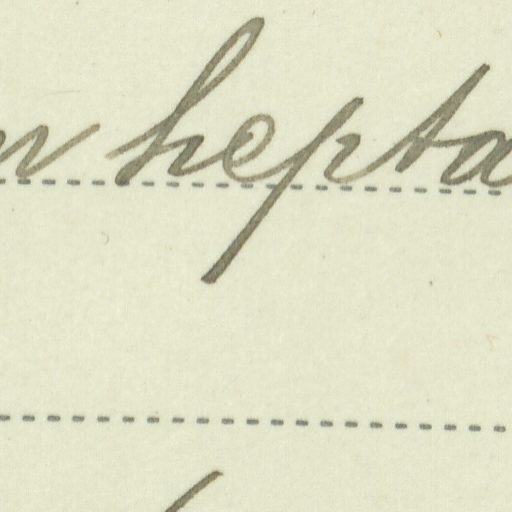 n hepta